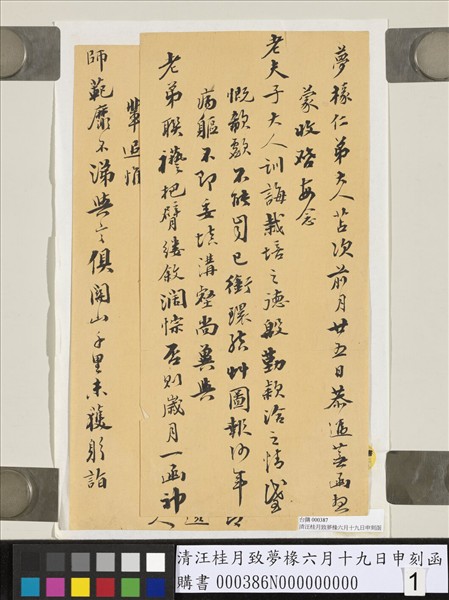 夢椽仁弟大人苫次前月廿五日恭遞蕪函想
蒙收啓每念
老夫子大人訓誨栽培之德殷勤款洽之情感
慨歔欷不能自已銜環結艸圖報何年
病軀不即委填溝壑尚冀與
老弟聯襼把臂縷敘濶悰否則歲月一函神
人
輩追惟
師範靡不涕與言俱關山千里未獲躬詣
台購 000387
清汪桂月致夢椽六月十九日申刻函
清汪桂月致夢椽六月十九日申刻函
購書 000386N000000000
1